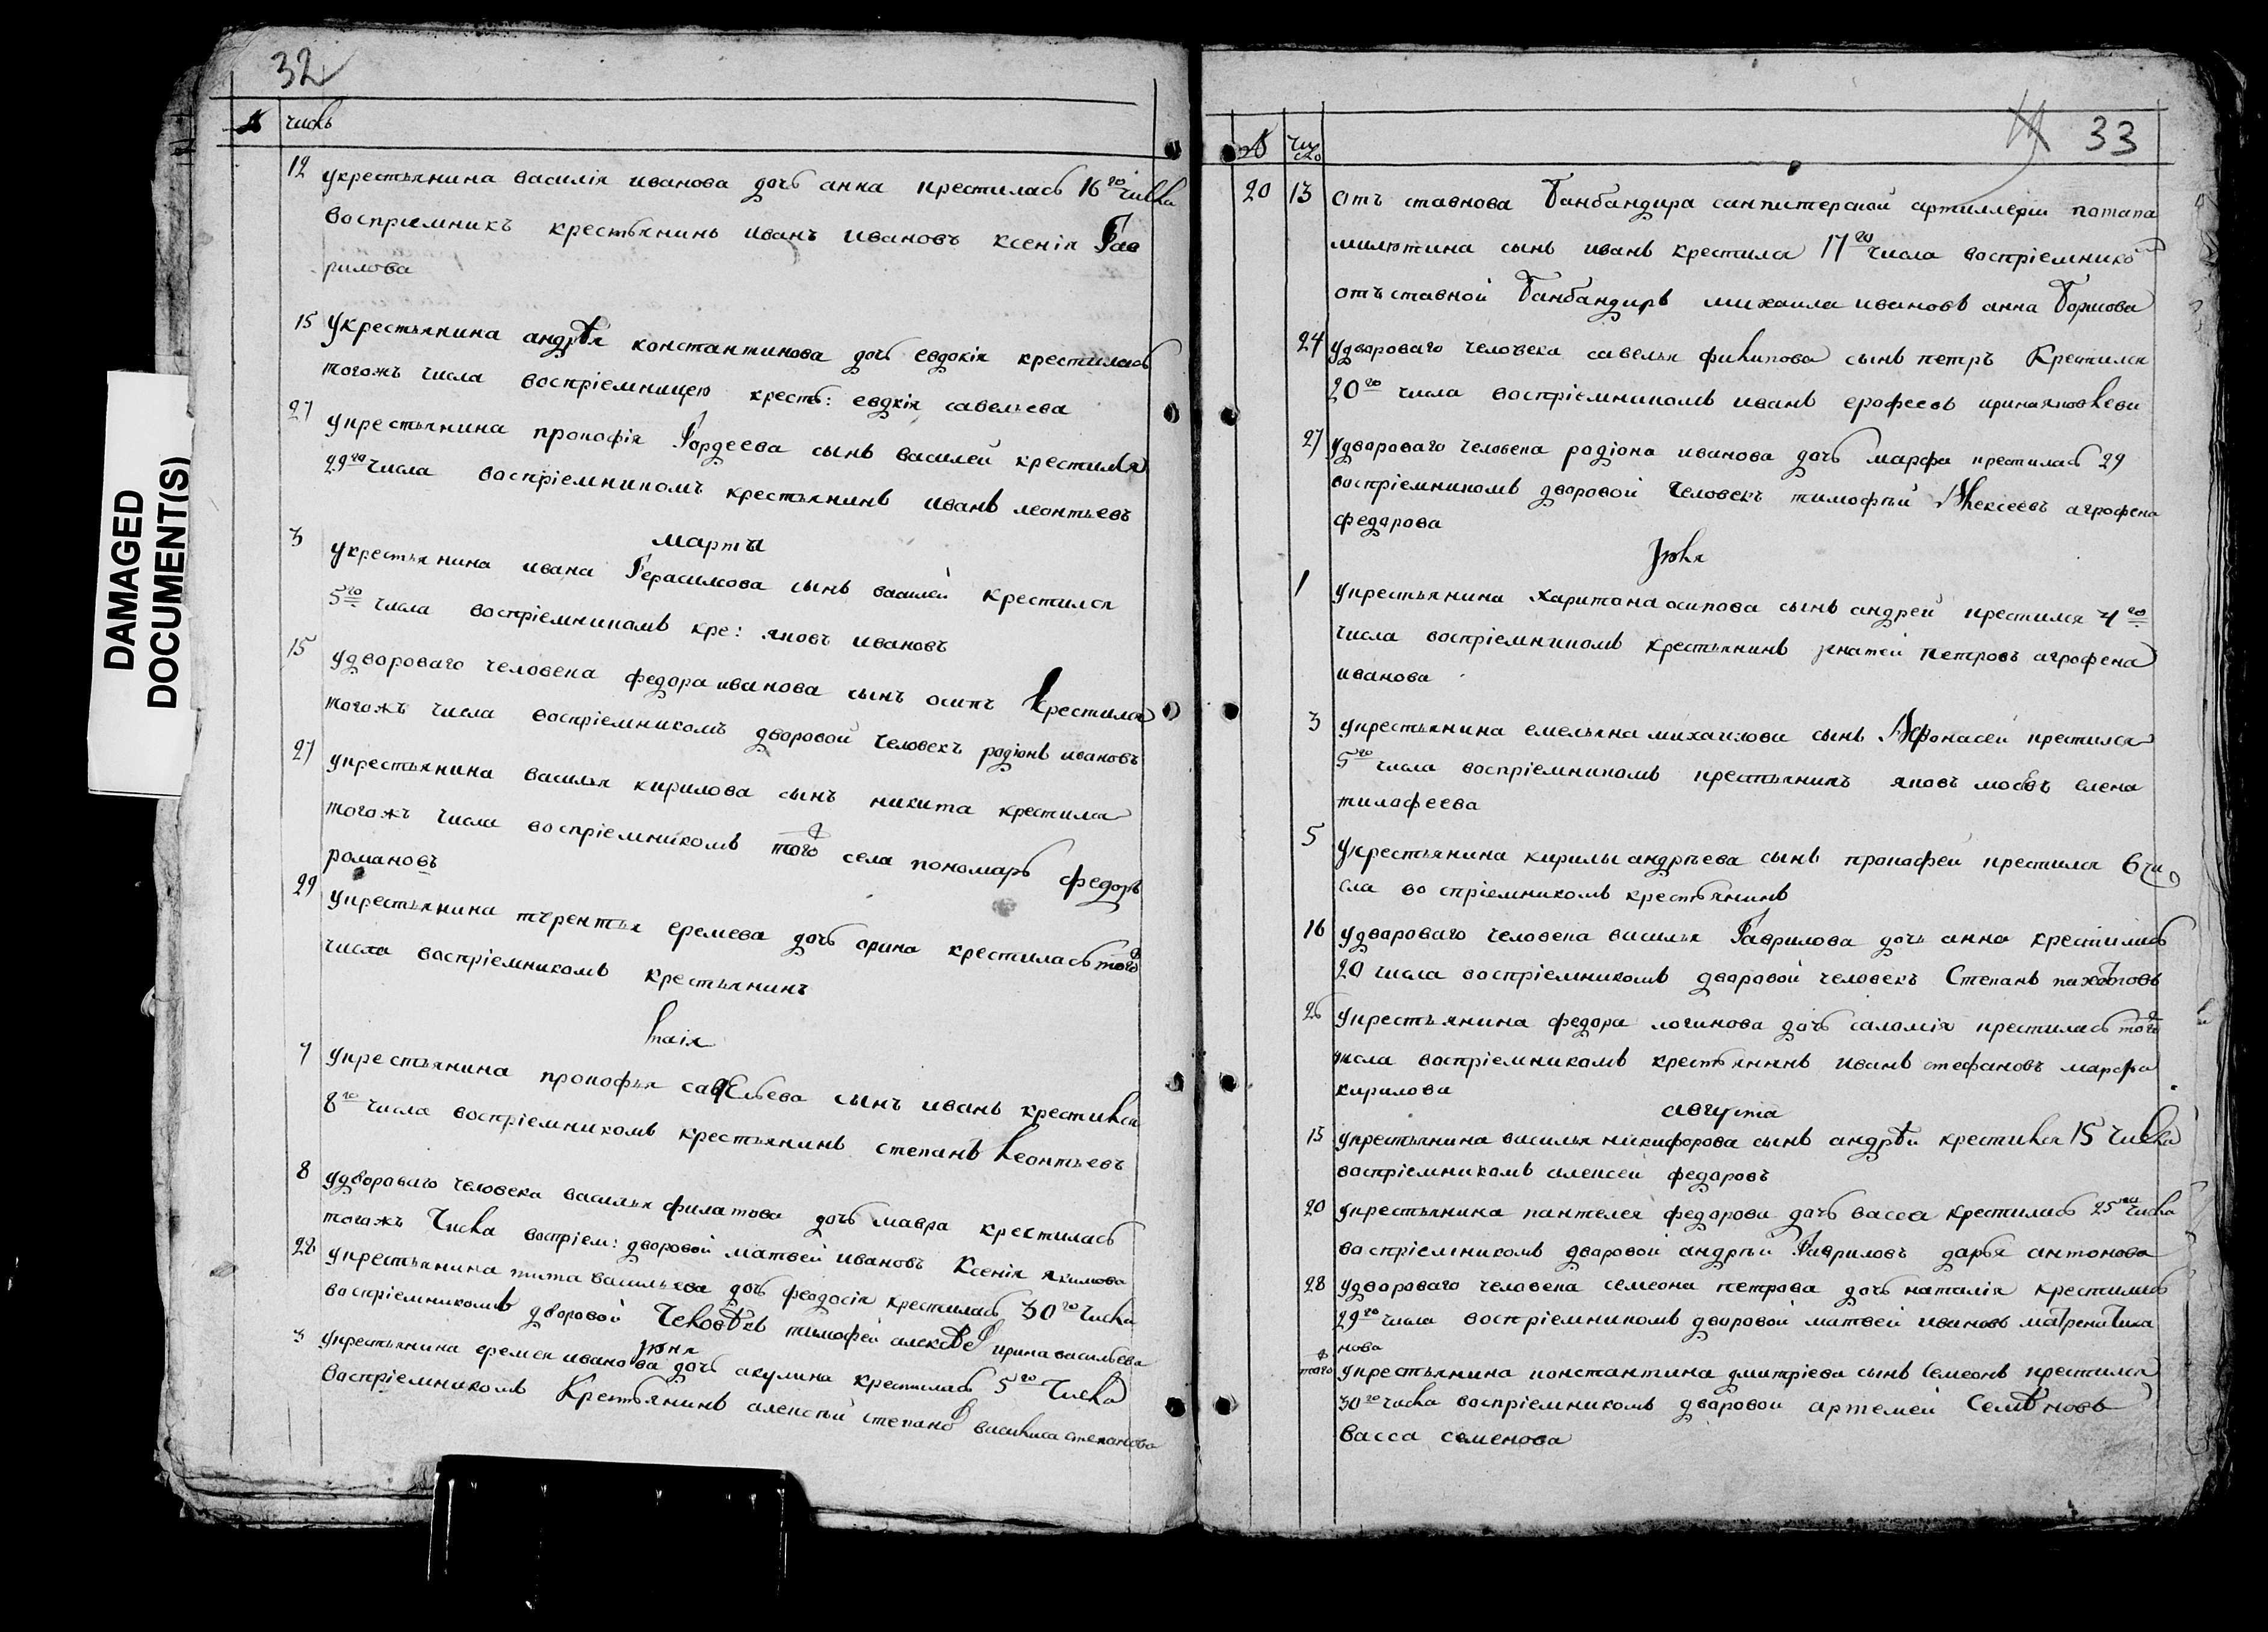 32
№ числъ
12 укрестьянина василія иванова дочь анна крестилась 16го числа
воспріемникъ крестьянинъ иванъ ивановъ ксенія Гав
рилова
15 Укрестьянина андрѣя константинова дочь евдокія крестилась
тогожъ числа воспріемницею кресть: евдкія савельева
27 укрестьянина прокофія Гордеева сынъ василей крестился
29го числа воспріемникомъ крестьянинъ иванъ леонтьевъ
марта
3 укрестьянина ивана Герасимова сынъ василей крестился
5го числа воспріемникомъ кре: яковъ ивановъ
15 удвороваго человека федора иванова сынъ осипъ крестился
тогожъ числа воспріемникомъ дворовой человекъ радіонъ ивановъ
27 укрестьянина василья кирилова сынъ никита крестился
тогожъ числа воспріемникомъ тогожъ села пономарь федоръ
романовъ
29 укрестьянина терентья еремева дочь орина крестилась тогожъ
числа воспріемникомъ крестьянинъ
маія
7 укрестьянина прокофья савельева сынъ иванъ крестился
8го числа воспріемникомъ крестьянинъ степанъ леонтьевъ
8 удвороваго человека василья филатова дочь мавра крестилась
тогожъ числа воспріем: дворовой матвей ивановъ Ксенія якимова
22 укрестьянина тита васильева дочь феодосія крестилась 30го числа
воспріемникомъ дворовой человѣкъ тимофей алексѣевъ ирина васильева
июня
3 укрестьянина еремея иванова дочь акулина крестилась 5го числа
воспріемникомъ Крестьянинъ алексѣй степановъ василиса степанова
33
№ число
20 13 отъ ставнова банбандира санпитерской артиллеріи потапа
милютина сынъ иванъ крестился 17го числа воспріемникъ
отъ ставной банбандиръ михаила ивановъ анна борисова
24 удвороваго человека савелья филипова сынъ петръ Крестился
20го числа воспріемникомъ иванъ ерофеевъ ирина яковлева
27 удвороваго человека радіона иванова дочь марфа крестилась 29
воспріемникомъ дворовой человекъ тимофѣй Алексеевъ агрофена
федорова
июля
1 укрестьянина харитона осипова сынъ андрей крестился 4го
числа воспріемникомъ крестьянинъ игнатей петровъ агрофена
иванова
3 укрестьянина емельяна михаилова сынъ Афонасей крестился
5го числа воспріемникомъ крестьянинъ яковъ елена
тимафеева
5 укрестьянина кирилы андрѣева сынъ прокофей крестился 6 чи
сла воспріемникомъ крестьянинъ
16 удвороваго человека василья Гаврилова дочь анна крестилась
20 числа воспріемникомъ дворовой человекъ Степанъ
26 укрестьянина федора логинова дочь саломія крестилась тогожъ
числа воспріемникомъ крестьянинъ иванъ стефановъ марфа
кирилова
августа
13 укрестьянина василья никифорова сынъ андрѣй крестился 15 числа
воспріемникомъ алексей федоровъ
20 укрестьянина пантелея федорова дочь васса крестилась 25го числа
воспріемникомъ дворовой андрѣй Гавриловъ дарья антонова
28 удвороваго человека семеона петрова дочь наталія крестилась
29го числа воспріемникомъ дворовой матвей ивановъ матрена тиха
нова
тогожъ укрестьянина константина дмитріева сынъ Семеонъ крестился
30го числа воспріемникомъ дворовой артемей Семѣновъ
васса семенова
DAMAGED
DOCUMENT(S)